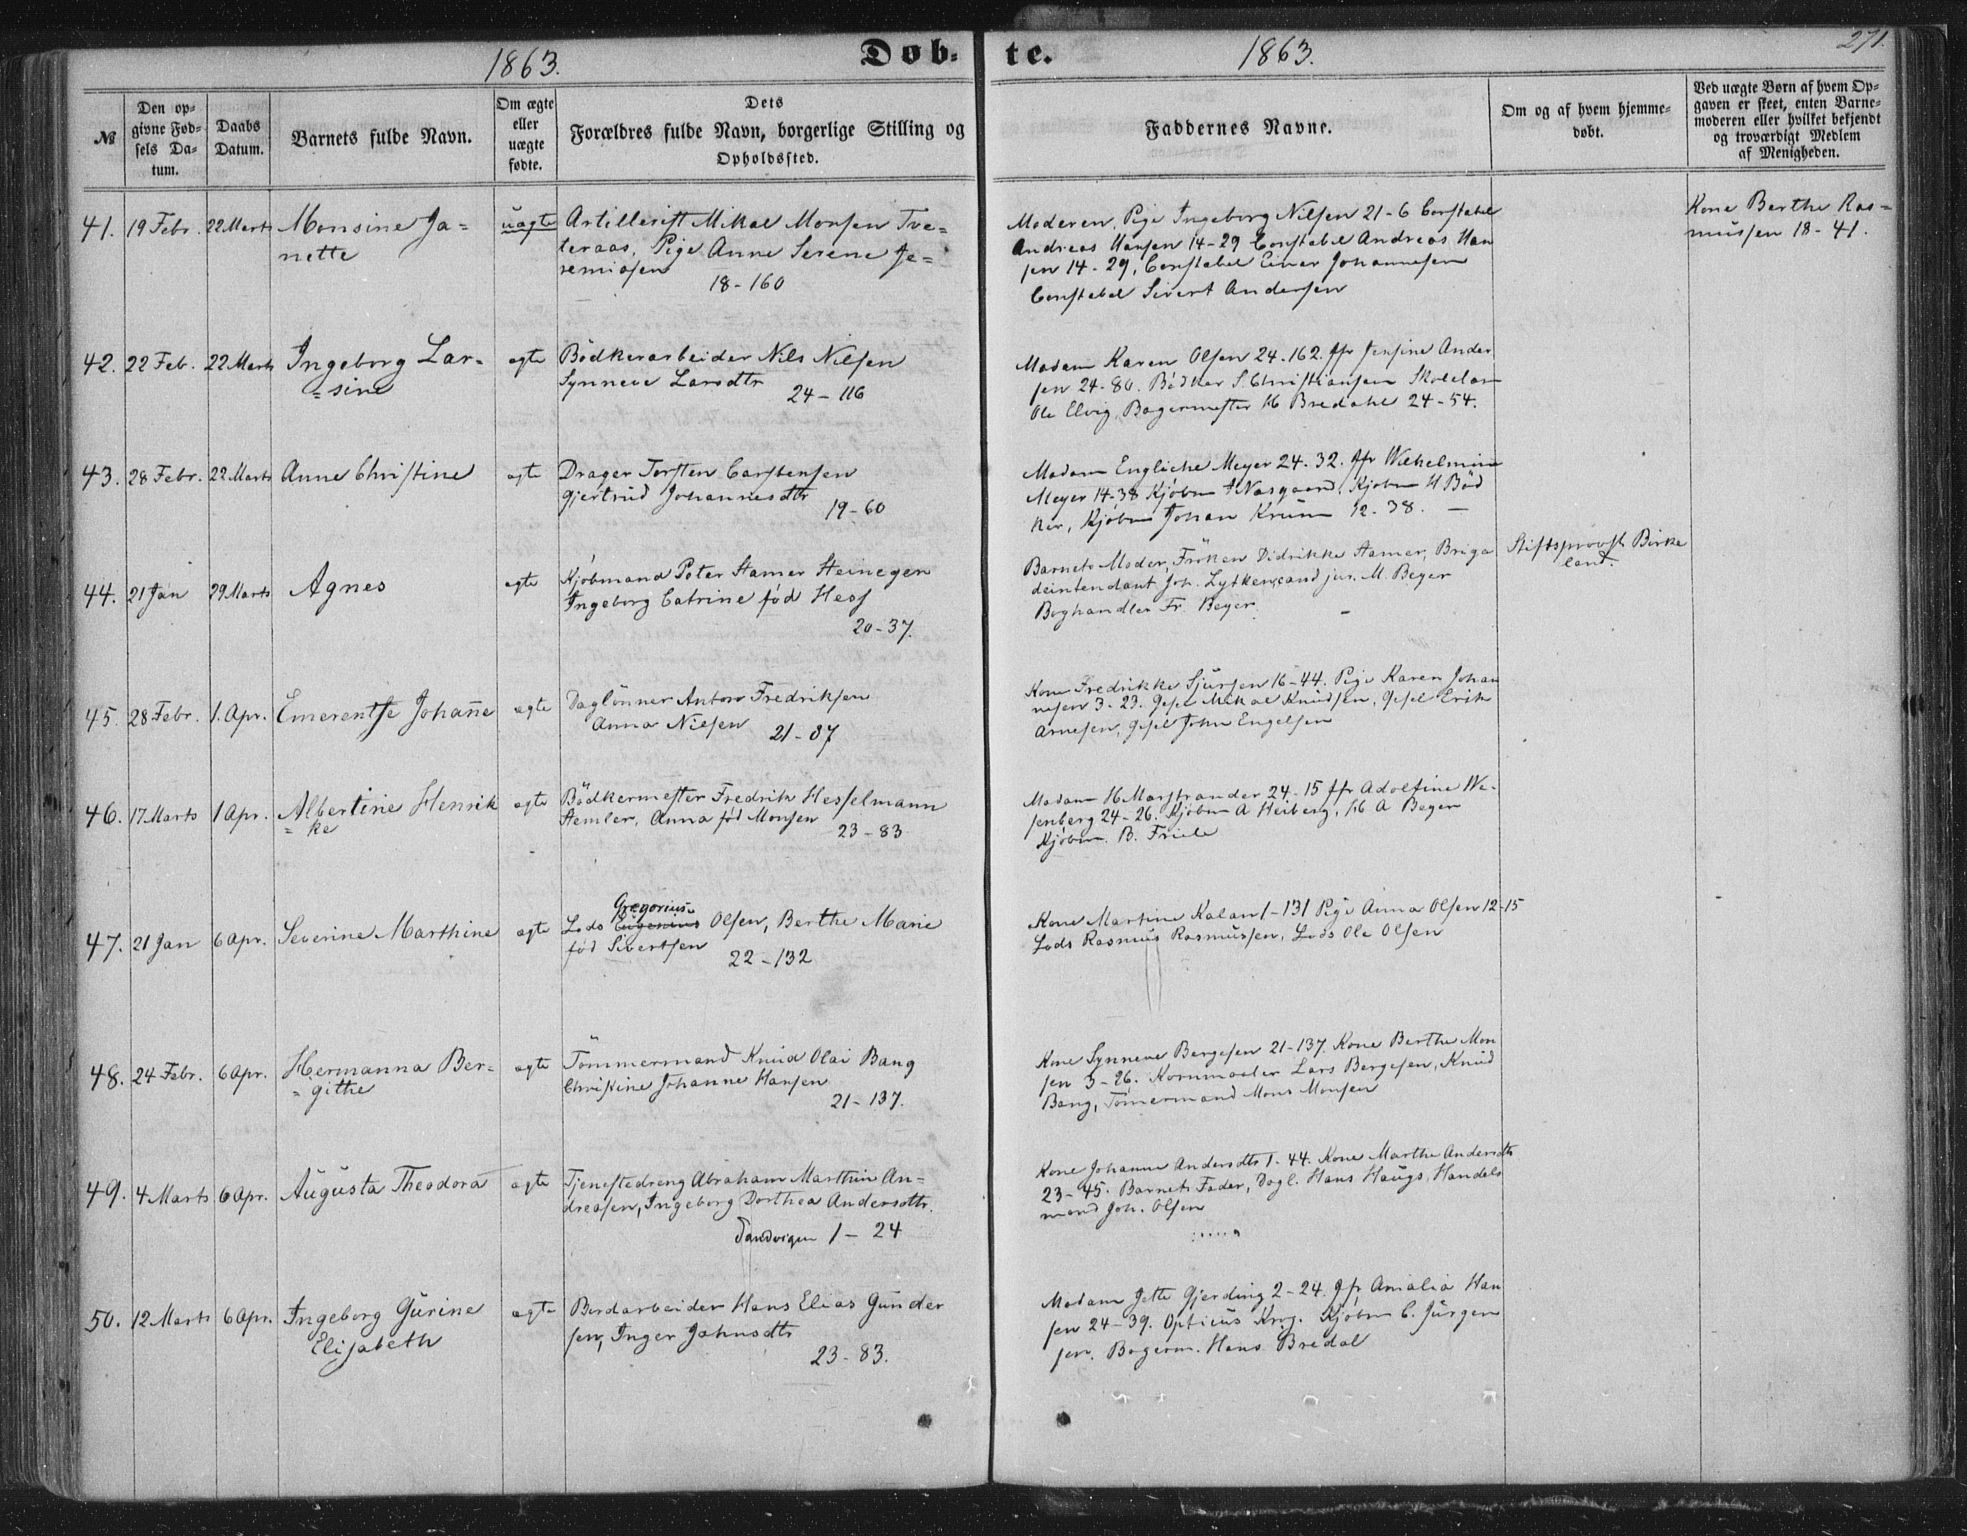 1863. Døb- te. 1863. 271.
№
Den op-
givne Fød-
sels Da-
tum.
Daabs
Datum.
Barnets fulde Navn.
Om ægte
eller
uægte
fødte.
Dets
Forældres fulde Navn, borgerlige Stilling og
Opholdssted.
Faddernes Navne.
Om og af hvem hjemme-
døbt.
Ved uægte Børn af hvem Op-
gaven er skeet, enten Barne-
moderen eller hvilket bekjendt
og troværdigt Medlem
af Menigheden.
41. 19 Febr. 22 Marts Monsine Ja-
nette
uægte
Artillerist Mikal Monsen Tve-
teraas, Pige Anne Serene Je-
remiasen
18-160
Moderen, Pige Ingeborg Nilsen 21-6 Constabel
Andreas Hansen 14-29 Constabel Andreas Han
sen 14-29, Constabel Einar Johannesen
Constabel Sivert Andersen
Kone Berthe Ras-
mussen 18-41.
42. 22 Feb. 22 Marts Ingeborg Lar-
=sine
ægte
Bödkerarbeider Nils Nilsen
Synneve Larsdtr
24-116
Madam Karen Olsen 24-162. Jfr Jensine Ander
sen 24-80. Bødker S. Christiansen Skolelær
Ole Elvig, Bagermester H Bredahl 24-54.
43. 28 Febr. 22 Marts Anne Christine
ægte
Drager Torsten Carstensen
Gjertrud Johannesdtr
19-60
Madam Engliche Meyer 24-32. Jfr Wilhelmine
Meyer 14-38 Kjøbm Nasgaard, Kjøbm H Bød
ker, Kjøbm Johan Krüm 12-38. —
44. 21 Jan 29 Marts Agnes
ægte
Kjøbmand Peter Hamer Heineger
Ingeborg Catrine fød Hess
20-37.
Barnets Moder, Frøken Didrikke Hamer, Briga
deintendant Joh. Lytken, cand jur. M. Beyer
Boghandler Fr. Beyer. —
Stiftsprovst Birke
land.
45. 28 Febr. 1. Apr. Emerentse Johan̄e
ægte
Daglönner Anton Fredriksen
Anna Nilsen 21-87
Kone Fredrikke Sjursen 16-44. Pige Karen Johan
nesen 3-23. Gesel Mikal Knudsen, Gesel Erik
Arnesen, Gesel John Engelsen
46. 17 Marts 1 Apr. Albertine Henrik
=ke
ægte
Bödkermester Fredrik Hesselmann
Hemler, Anna fød Monsen
23-83
Madam H Marstrander 24-15 Jfr Adolfine We-
senberg 24-26. Kjøbm A Heiberg, A Beyer
Kjøbm. B. Friele
47. 21 Jan 6 Apr. Severine Marthine
ægte
Gregorius
Lods Eugenius Olsen, Berthe Marie
fød Sivertsen
22-132
Kone Martine Kalan 1-131 Pige Anna Olsen 12-15
Lods Rasmus Rasmussen, Lods Ole Olsen
48. 24 Febr. 6 Apr. Hermanna Ber-
=githe
ægte
Tømmermand Knud Olai Bang
Christine Johanne Hansen
21-137.
Kone Synneve Bergesen 21-137. Kone Berthe Mon
sen 3-26. Kornmaaler Lars Bergesen, Knud
Bang, Tömermand Mons Monsen
49. 4 Marts 6 Apr. Augusta Theodora
ægte
Tjenestedreng Abraham Marthin An-
dreasen, Ingeborg Dorthea Andersdtr.
Sandvigen 1-24
Kone Johanne Andersdtr 1-44. Kone Marthe Andersdtr
23-45. Barnets Fader, Dagl. Hans Haugs, Handels
mand Joh. Olsen
50. 12 Marts 6 Apr. Ingeborg Gurine
Elisabeth
ægte
Bordarbeider Hans Elias Gunder
sen, Inger Johnsdtr
23-83.
Madam Jette Gjerding 2-24. Jfr Amalia Han
sen 24-39. Opticus Krog. Kjøbm C. Jürgen
sen. Bagerm. Hans Bredal